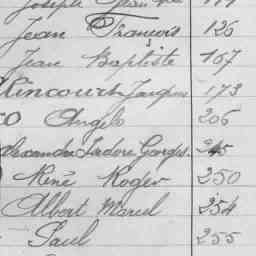 Joseph
Jean François 126
Jean Baptiste 167
Rincourt Jacques 173
Angelo 206
Alexandre Isidore Georges
René Roger 250
Albert Marcel 254
Paul 255